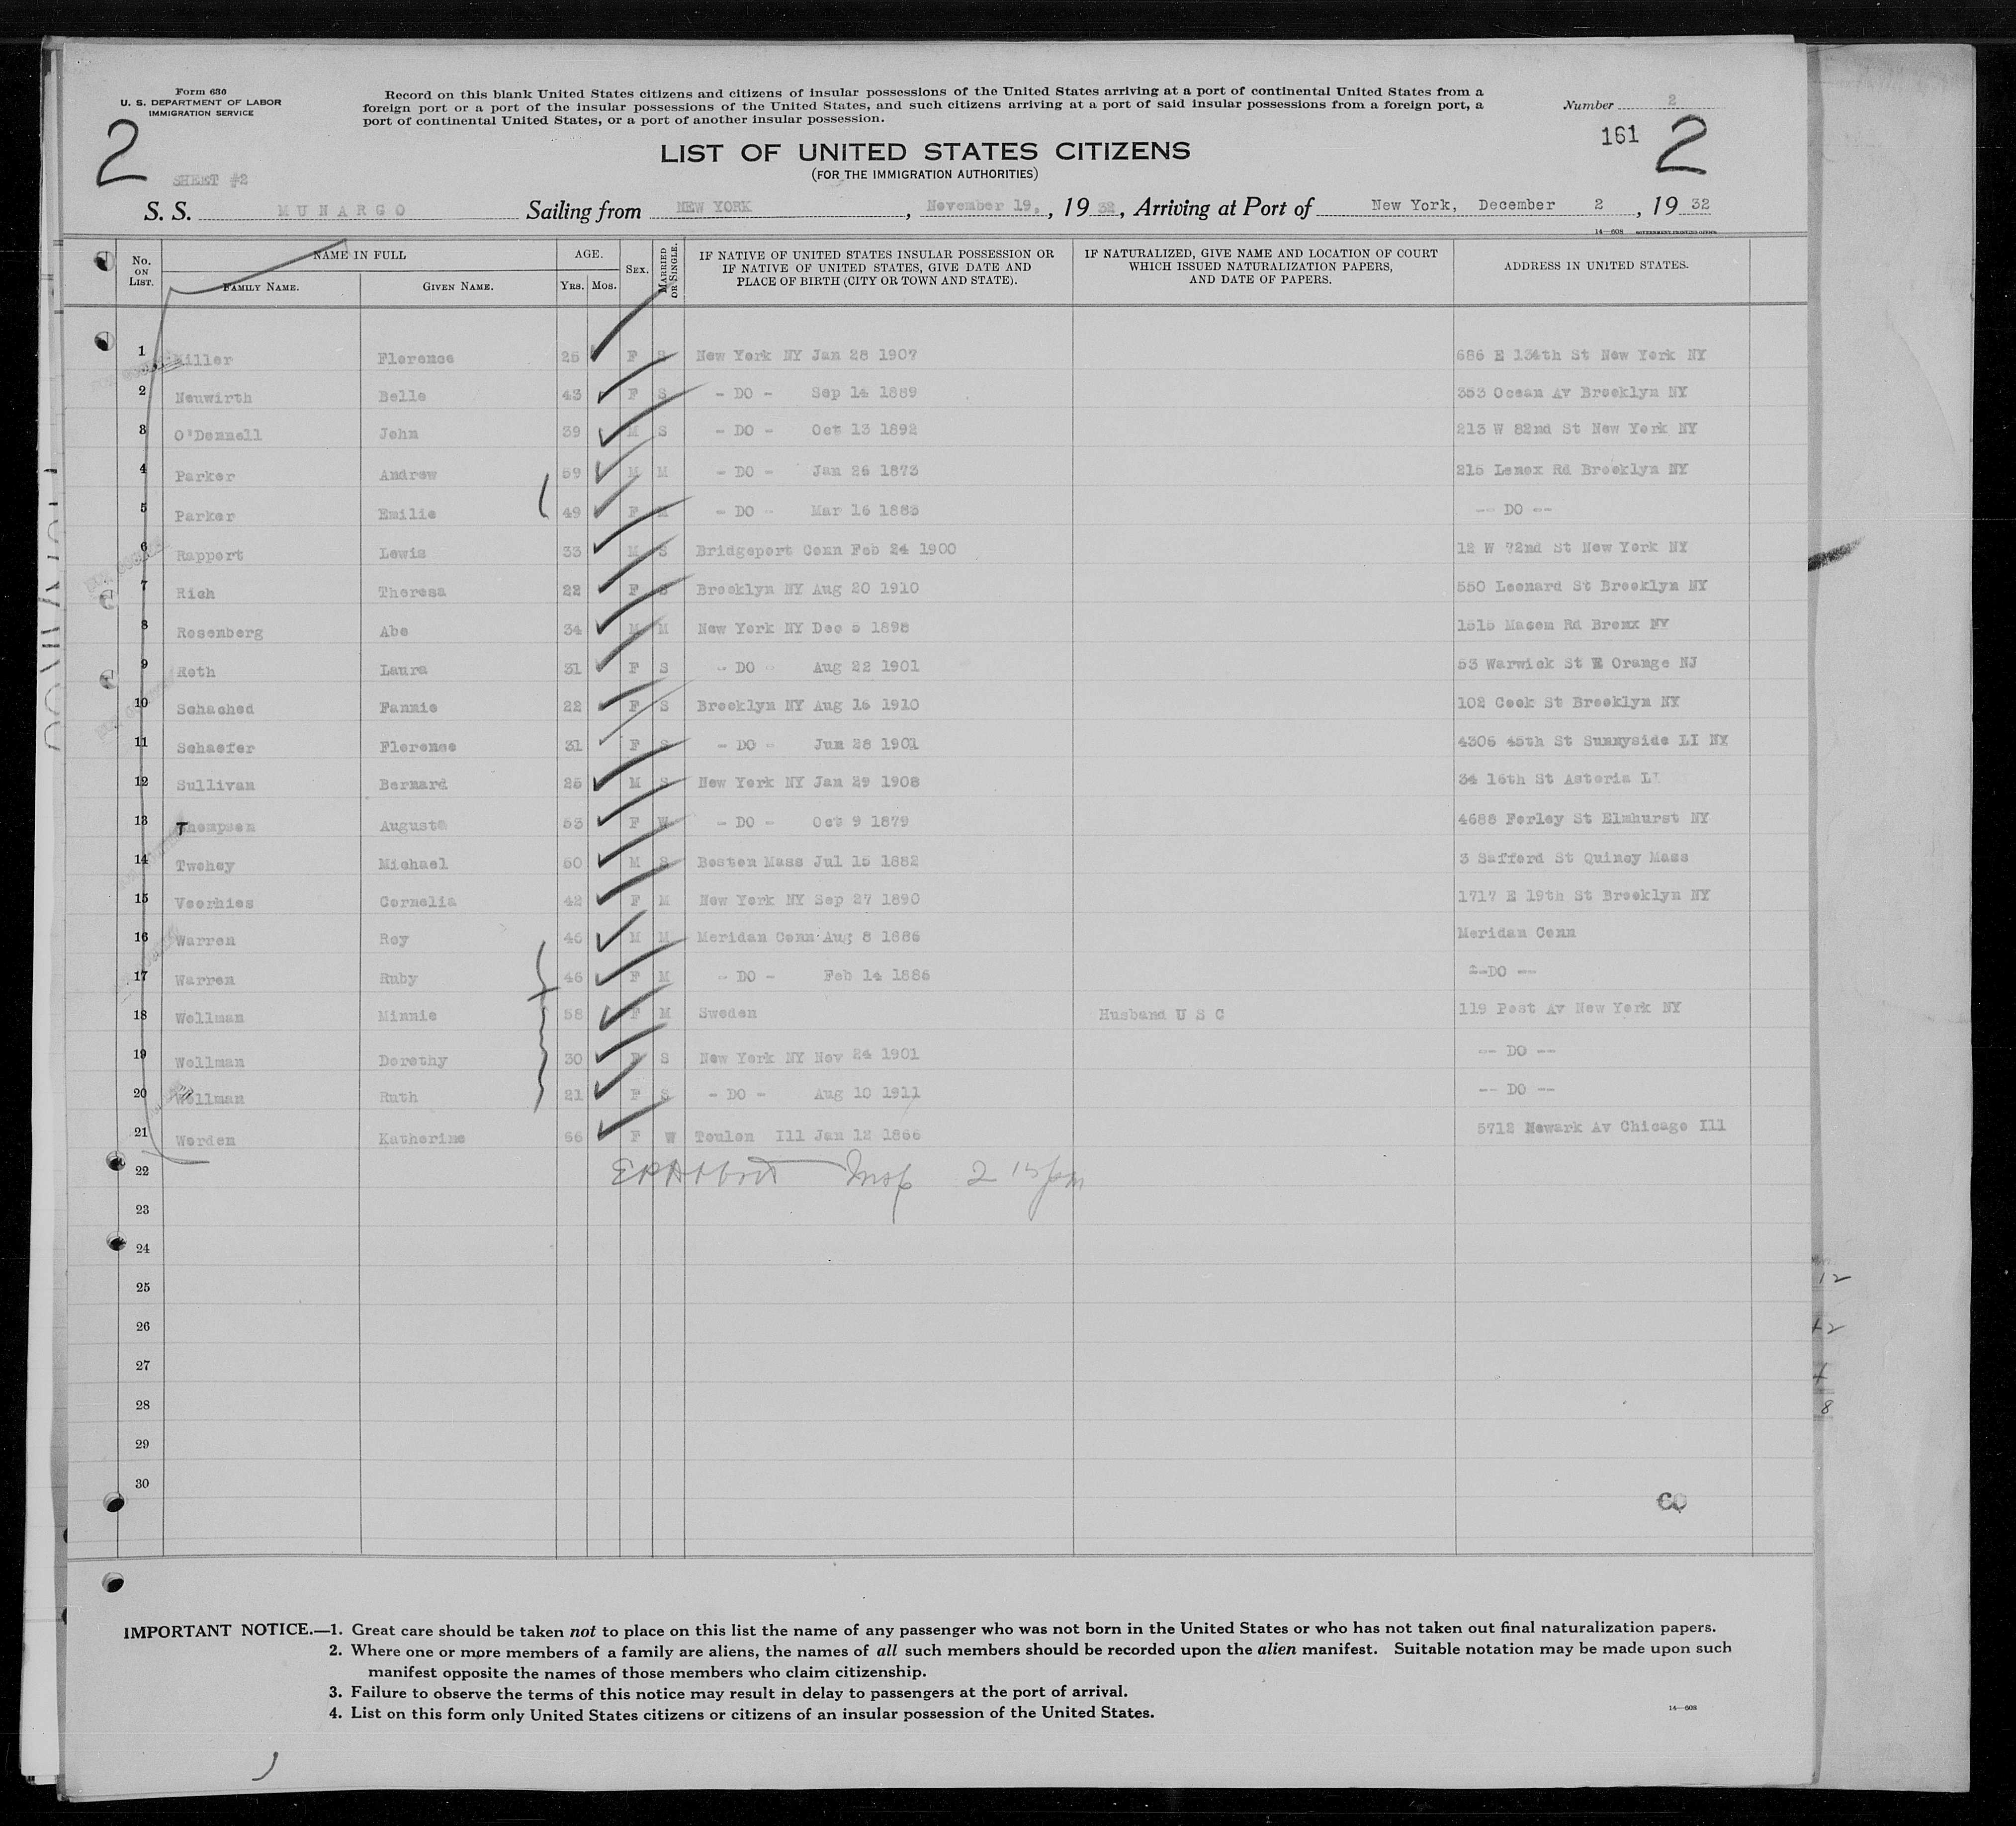 Form 630
U. S. DEPARTMENT OF LABOR
IMMIGRATION SERVICE
Record on this blank United States citizens and citizens of insular possessions of the United States arriving at a port of continental United States from a
foreign port or a port of the insular possessions of the United States, and such citizens arriving at a port of said insular possessions from a foreign port, a
port of continental United States, or a port of another insular possession.
Number 2
2
161 2
LIST OF UNITED STATES CITIZENS
(FOR THE IMMIGRATION AUTHORITIES)
SHEET #2
S. S. MUNARGO Sailing from NEW YORK, November 19, 1932, Arriving at Port of New York, December 2, 1932
14—608 GOVERNMENT PRINTING OFFICE
No. ON LIST. NAME IN FULL FAMILY NAME. GIVEN NAME. AGE. YRS. MOS. SEX. MARRIED OR SINGLE. IF NATIVE OF UNITED STATES INSULAR POSSESSION OR IF NATIVE OF UNITED STATES, GIVE DATE AND PLACE OF BIRTH (CITY OR TOWN AND STATE). IF NATURALIZED, GIVE NAME AND LOCATION OF COURT WHICH ISSUED NATURALIZATION PAPERS, AND DATE OF PAPERS. ADDRESS IN UNITED STATES.
1 Miller Florence 25 F S New York NY Jan 28 1907 686 E 134th St New York NY
2 Neuwirth Belle 43 F S - DO - Sep 14 1889 353 Ocean Av Brooklyn NY
3 O'Donnell John 39 M S - DO - Oct 13 1892 213 W 82nd St New York NY
4 Parker Andrew 59 M M - DO - Jan 26 1873 215 Lenox Rd Brooklyn NY
5 Parker Emilie 49 F M - DO - Mar 16 1883 -- DO --
6 Rappert Lewis 33 M S Bridgeport Conn Feb 24 1900 12 W 72nd St New York NY
7 Rich Theresa 22 F S Brooklyn NY Aug 20 1910 550 Leonard St Brooklyn NY
8 Rosenberg Abe 34 M M New York NY Dec 5 1898 1515 Macom Rd Bronx NY
9 Roth Laura 31 F S - DO - Aug 22 1901 53 Warwick St E Orange NJ
10 Schached Fannie 22 F S Brooklyn NY Aug 16 1910 102 Cook St Brooklyn NY
11 Schaefer Florence 31 F S - DO - Jun 28 1901 4306 45th St Sunnyside LI NY
12 Sullivan Bernard 25 M S New York NY Jan 29 1908 34 16th St Astoria LI
13 Thompson Augusta 53 F W - DO - Oct 9 1879 4688 Forley St Elmhurst NY
14 Twohey Michael 50 M S Boston Mass Jul 15 1882 3 Safford St Quincy Mass
15 Voorhies Cornelia 42 F M New York NY Sep 27 1890 1717 E 19th St Brooklyn NY
16 Warren Roy 46 M M Meridan Conn Aug 8 1886 Meridan Conn
17 Warren Ruby 46 F M - DO - Feb 14 1886 --DO --
18 Wellman Minnie 58 F M Sweden Husband U S C 119 Post Av New York NY
19 Wellman Dorothy 30 F S New York NY Nov 24 1901 -- DO --
20 Wellman Ruth 21 F S - DO - Aug 10 1911 -- DO --
21 Worden Katherine 66 F W Toulon Ill Jan 12 1866 5712 Newark Av Chicago Ill
22
Insp 2 15 pm
23
24
25
26
27
28
29
30
IMPORTANT NOTICE.—1. Great care should be taken not to place on this list the name of any passenger who was not born in the United States or who has not taken out final naturalization papers.
2. Where one or more members of a family are aliens, the names of all such members should be recorded upon the alien manifest. Suitable notation may be made upon such
manifest opposite the names of those members who claim citizenship.
3. Failure to observe the terms of this notice may result in delay to passengers at the port of arrival.
4. List on this form only United States citizens or citizens of an insular possession of the United States.
14—608